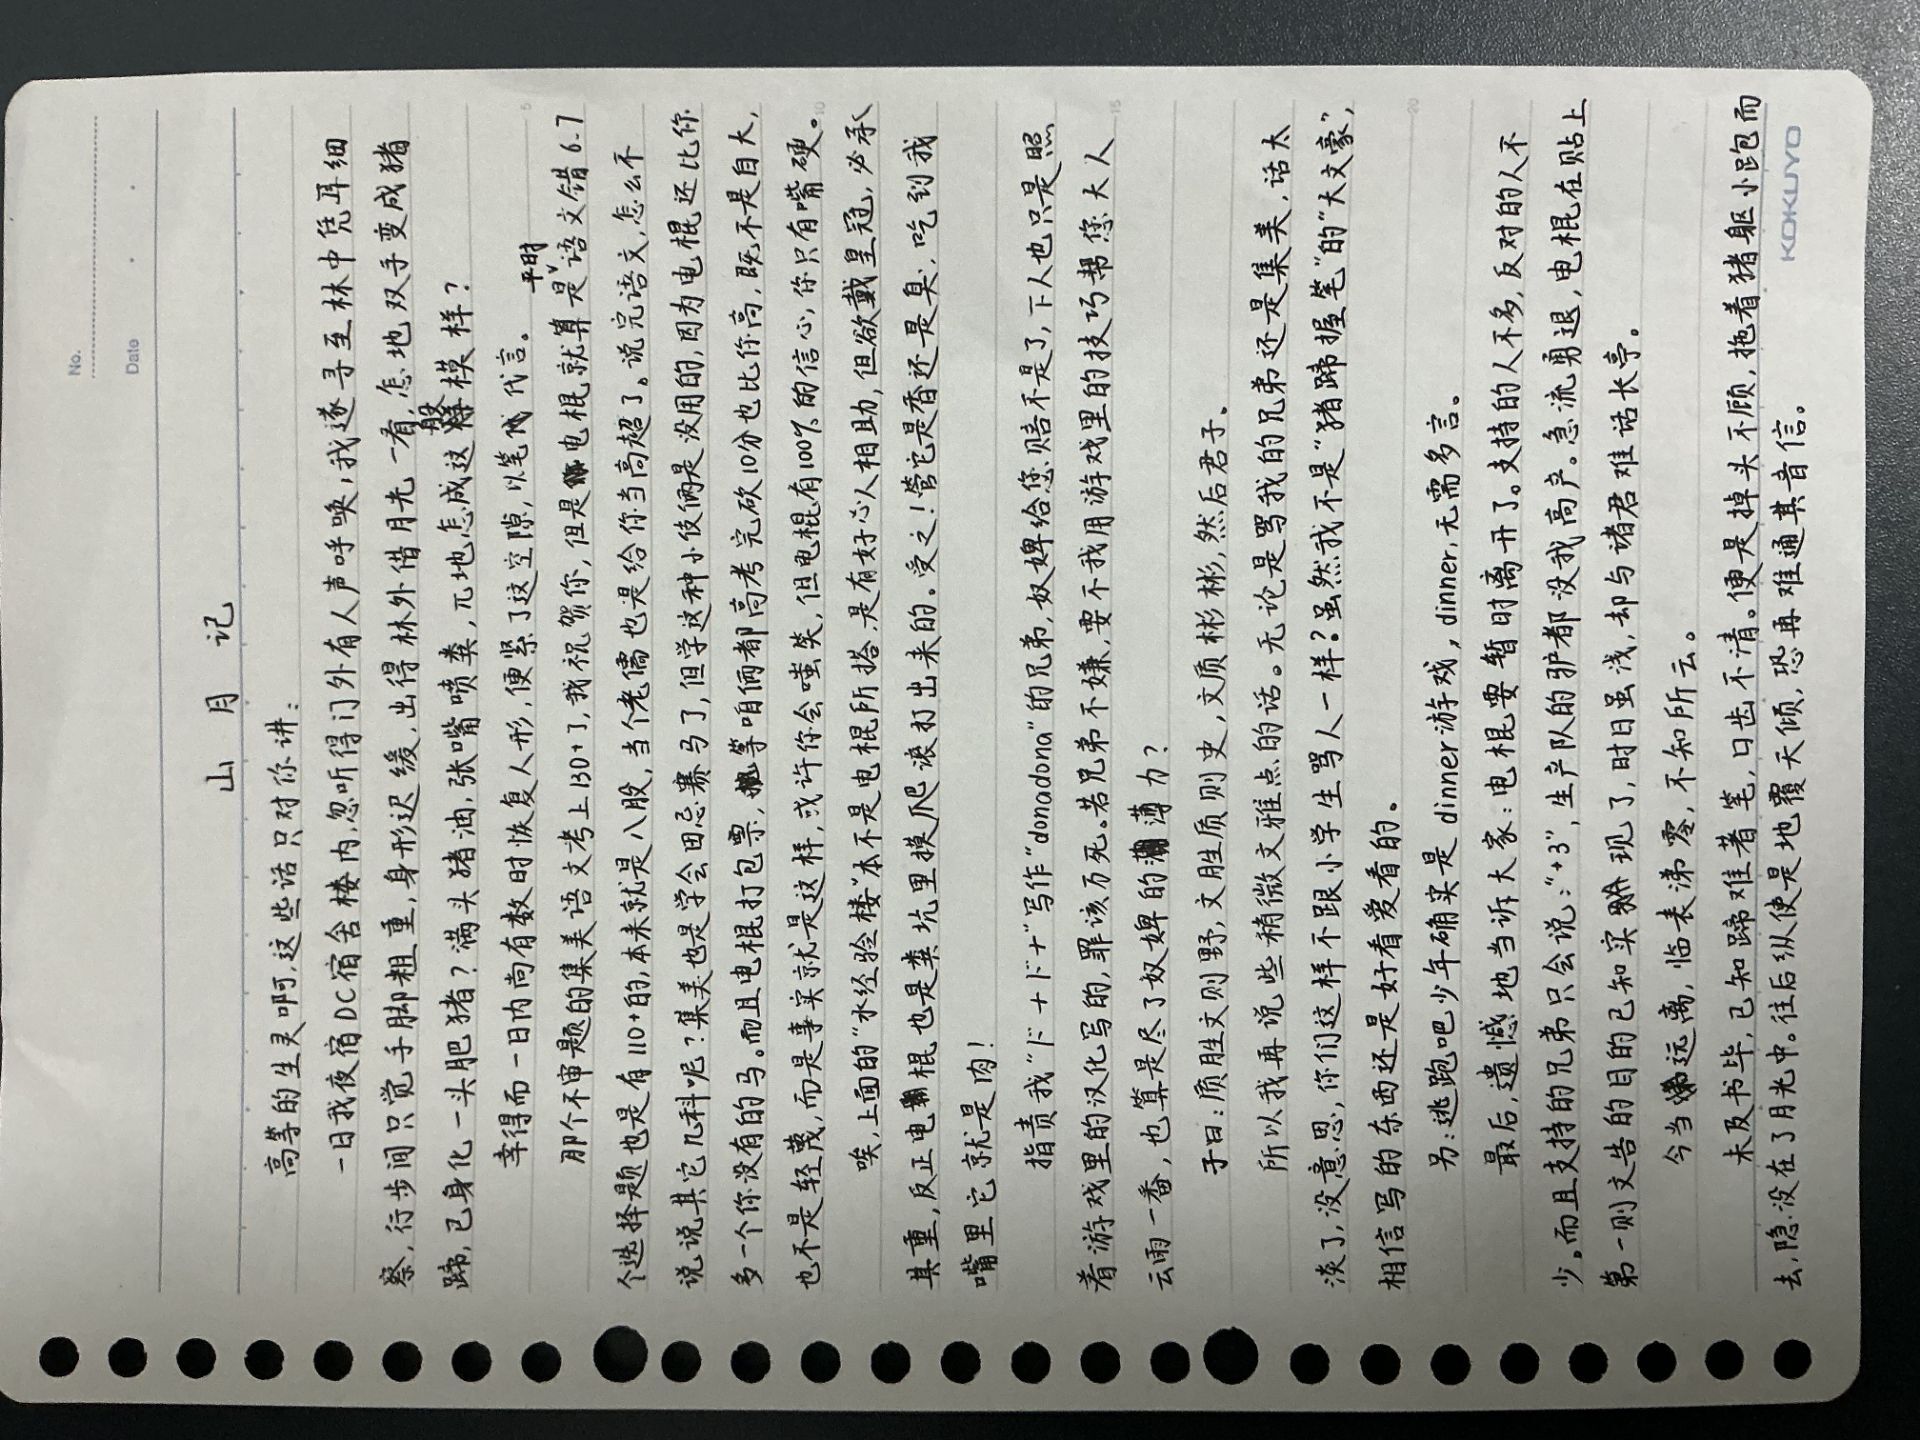 No.
Date
山月记
高等的生灵啊,这些话只对你讲:
一日我夜宿DC宿舍楼内,忽听得门外有人声呼唤,我遂寻至林中凭耳细
察,行步间只觉手脚粗重,身形迟缓,出得林外借月光一看,怎地双手变成猪
蹄,已身化一头肥猪?满头猪油,张嘴喷粪,兀地怎成这般模样?
幸得而一日内尚有数时恢复人形,便紧了这空隙,以笔代言。
那个不审题的集美语文考上130+了,我祝贺你,但是电棍就算是平时语文错6-7
个选择题也是有110+的,本来就是八股,当个老儒也是给你当高超了。说完语文,怎么不
说说其它几科呢?集美也是学会田忌赛马了,但学这种小伎俩是没用的,因为电棍还比你
多一个你没有的马。而且电棍打包票,等咱俩都高考完砍10分也比你高,既不是自大,
也不是轻蔑,而是事实就是这样,或许你会嗤笑,但电棍有100%的信心,你只有嘴硬。
唉,上面的"水经验楼"本不是电棍所搭,是有好心人相助,但欲戴皇冠,必承
其重,反正电棍也是粪坑里摸爬滚打出来的。受之!管它是香还是臭,吃到我
嘴里它就是肉!
指责我"ドナドナ"写作"donadona"的兄弟,奴婢给您赔不是了,下人也只是照
着游戏里的汉化写的,罪该万死。若兄弟不嫌,要不我用游戏里的技巧帮您大人
云雨一番,也算是尽了奴婢的薄力?
子曰:质胜文则野,文胜质则史,文质彬彬,然后君子。
所以我再说些稍微文雅点的话。无论是骂我的兄弟还是集美,话太
淡了,没意思,你们这样不跟小学生骂人一样?虽然我不是"猪蹄握笔"的"大文豪",
相信写的东西还是好看爱看的。
另:逃跑吧少年确实是dinner游戏,dinner,无需多言。
最后,遗憾地当诉大家:电棍要暂时离开了。支持的人不多,反对的人不
少。而且支持的兄弟只会说:"+3",生产队的驴都没我高产。急流勇退,电棍在贴上
第一则文告的目的已知实现了,时日虽浅,却与诸君难话长亭。
今当远离,临表涕零,不知所云。
未及书毕,已知蹄难着笔,口齿不清。便是掉头不顾,拖着猪躯小跑而
去,隐没在了月光中。往后纵使是地覆天倾,恐再难通其音信。
5
10
15
20
KOKUYO